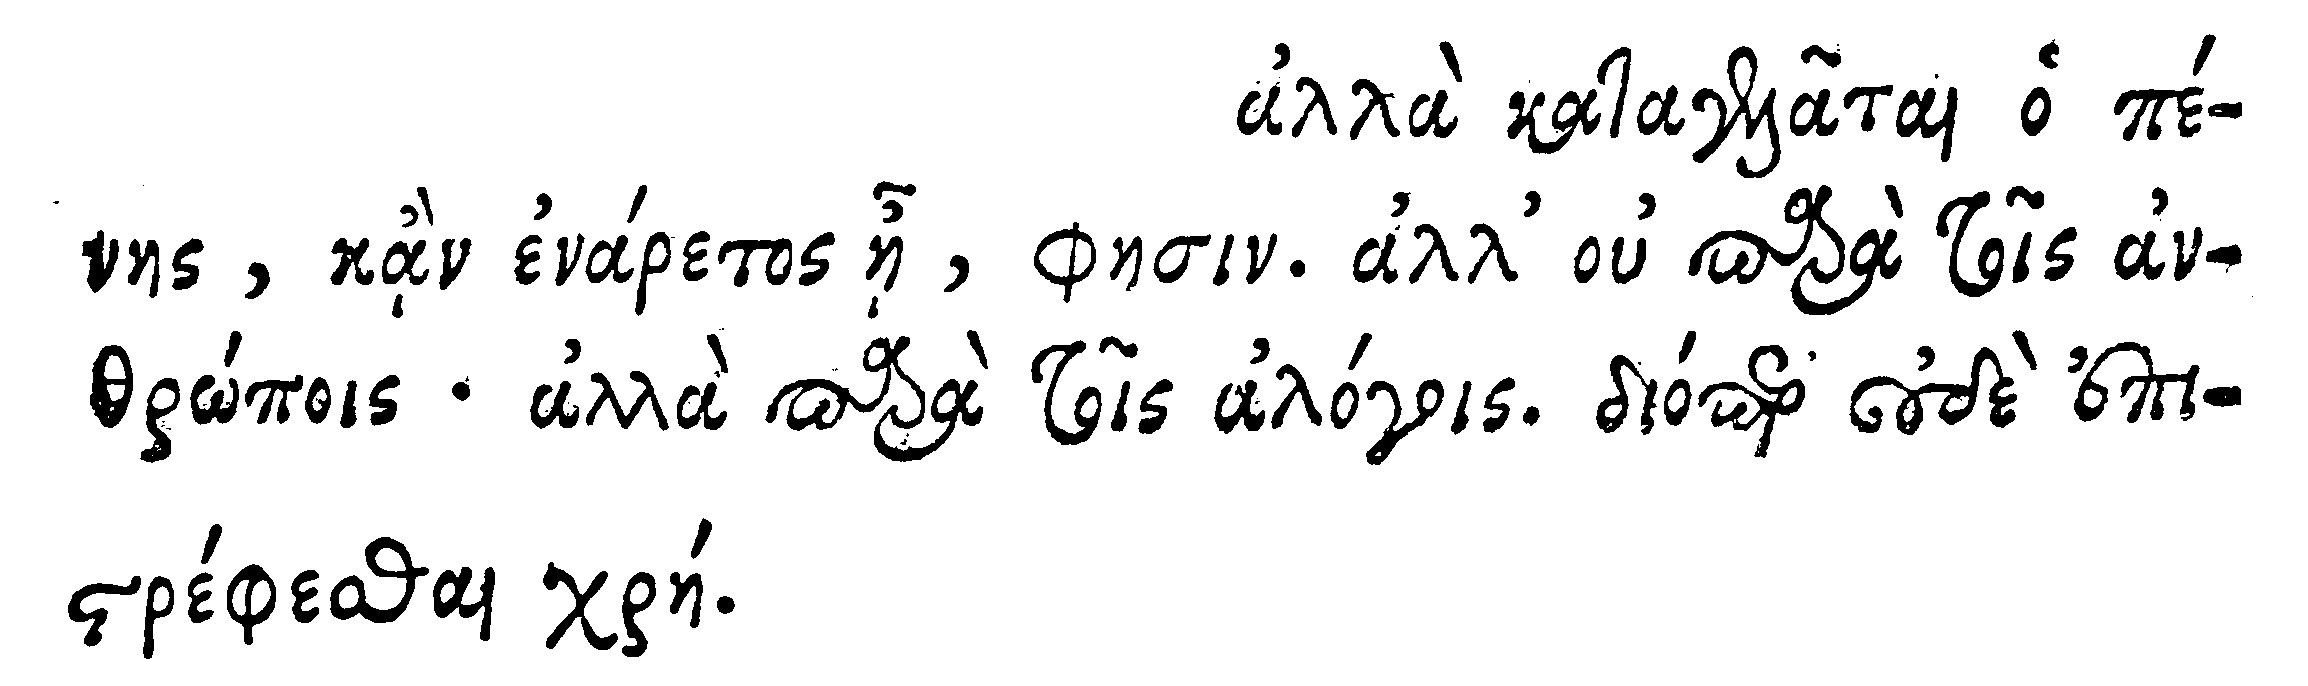 ἀλλὰ καταγελᾶται ὁ πέ-
νης, κᾂν ἐνάρετος ᾖ, φησιν. ἀλλ᾽ οὐ παρὰ τοῖς ἀν-
θρώποις · ἀλλὰ παρὰ τοῖς ἀλόγοις. διόπερ οὐδὲ ἐπι-
στρέφεσθαι χρή.